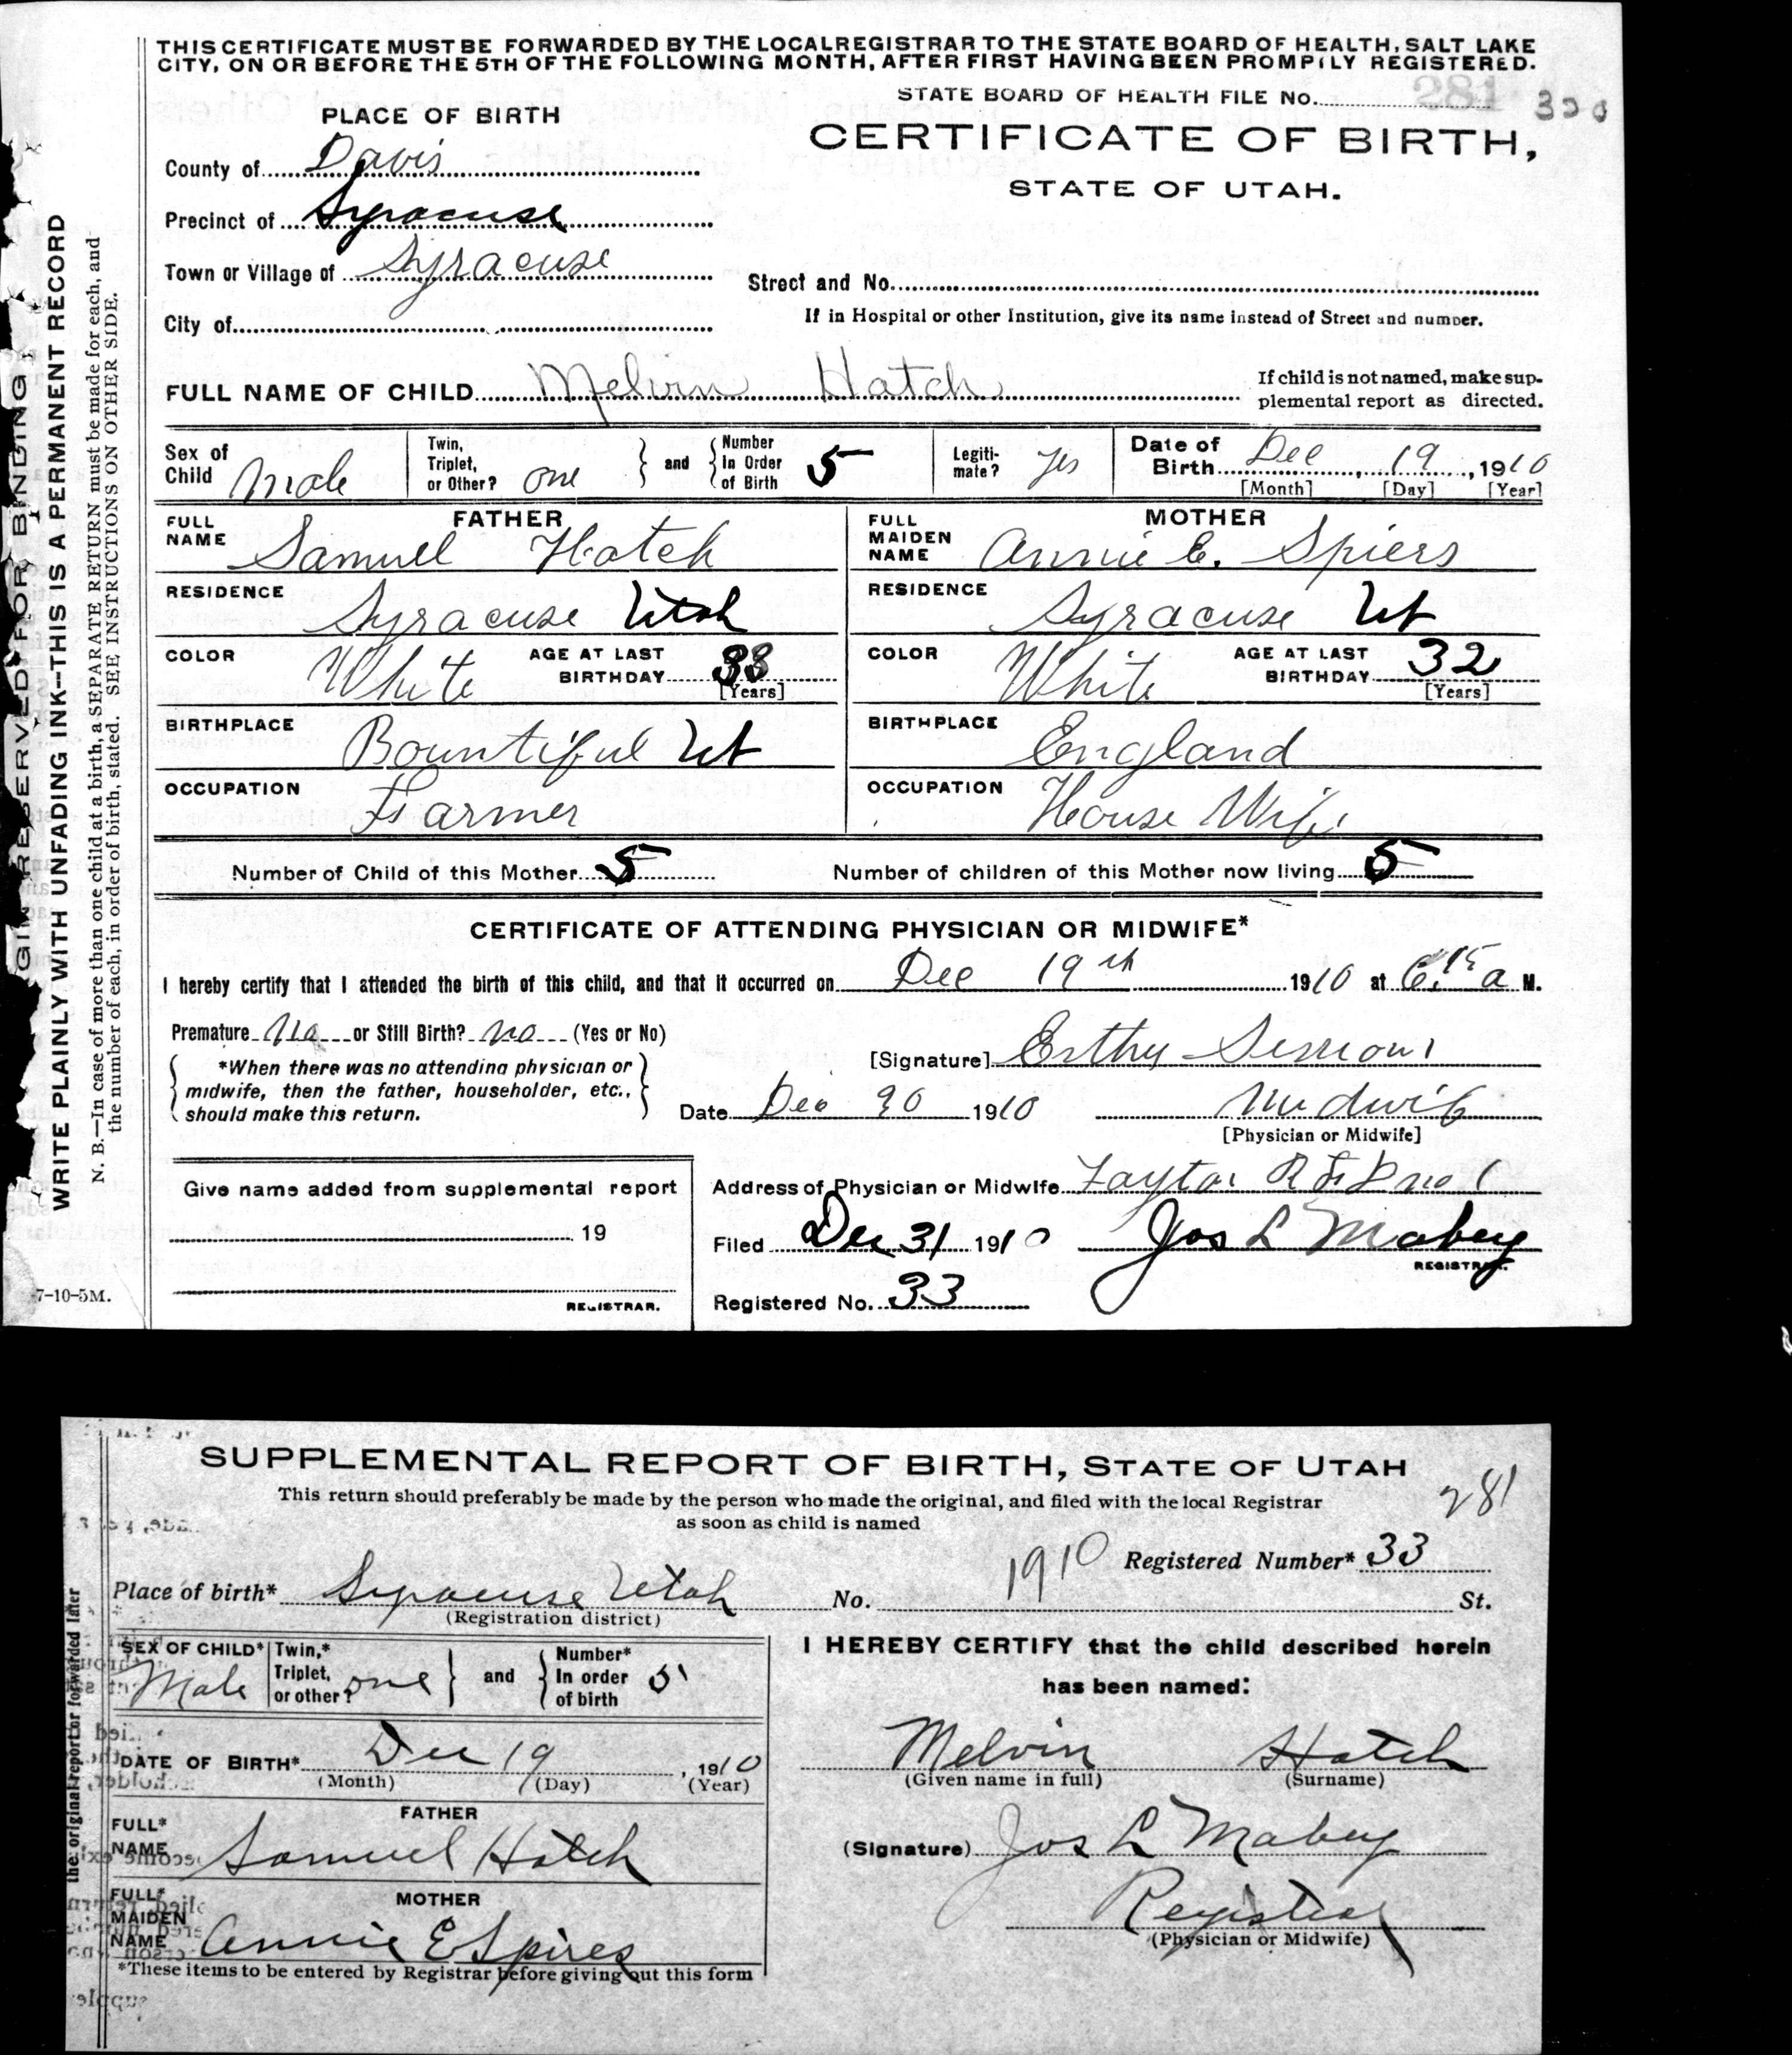 THIS CERTIFICATE MUST BE FORWARDED BY THE LOCAL REGISTRAR TO THE STATE BOARD OF HEALTH, SALT LAKE
CITY, ON OR BEFORE THE 5TH OF THE FOLLOWING MONTH, AFTER FIRST HAVING BEEN PROMPTLY REGISTERED.
STATE BOARD OF HEALTH FILE No. 281
PLACE OF BIRTH
CERTIFICATE OF BIRTH,
STATE OF UTAH.
County of Davis
Precinct of Syracuse
Town or Village of Syracuse
Street and No.
City of
If in Hospital or other Institution, give its name instead of Street and number.
FULL NAME OF CHILD Melvin Hatch
If child is not named, make sup-
plemental report as directed.
Sex of Child Male
Twin, Triplet, or Other? one
and
Number In Order of Birth 5
Legiti-mate? yes
Date of Birth Dec 19, 1910
[Month] [Day] [Year]
FATHER
FULL NAME Samuel Hatch
MOTHER
FULL MAIDEN NAME Annie E. Spiers
RESIDENCE Syracuse Utah
RESIDENCE Syracuse Ut
COLOR White AGE AT LAST BIRTHDAY 33 [Years]
COLOR White AGE AT LAST BIRTHDAY 32 [Years]
BIRTHPLACE Bountiful Ut
BIRTHPLACE England
OCCUPATION Farmer
OCCUPATION House Wife
Number of Child of this Mother 5
Number of children of this Mother now living 5
CERTIFICATE OF ATTENDING PHYSICIAN OR MIDWIFE*
I hereby certify that I attended the birth of this child, and that it occurred on Dec 19th 1910 at 6.15 a M.
Premature No or Still Birth? no (Yes or No)
*When there was no attending physician or
midwife, then the father, householder, etc.,
should make this return.
[Signature] Esthy Sessions
Date Dec 30 1910 Midwife
[Physician or Midwife]
Give name added from supplemental report
19
REGISTRAR.
Address of Physician or Midwife Layton R F D no 1
Filed Dec 31 1910 Jos L Mabey
REGISTRAR.
Registered No. 33
7-10-5M.
GIN RESERVED FOR BINDING
WRITE PLAINLY WITH UNFADING INK—THIS IS A PERMANENT RECORD
N. B.—In case of more than one child at a birth, a SEPARATE RETURN must be made for each, and
the number of each, in order of birth, stated. SEE INSTRUCTIONS ON OTHER SIDE.
SUPPLEMENTAL REPORT OF BIRTH, STATE OF UTAH
281
This return should preferably be made by the person who made the original, and filed with the local Registrar
as soon as child is named
1910 Registered Number* 33
Place of birth* Syracuse Utah No. St.
(Registration district)
SEX OF CHILD* Male
Twin,* Triplet, or other? one
and
Number* In order of birth 5
DATE OF BIRTH* Dec 19, 1910
(Month) (Day) (Year)
FATHER
FULL* NAME Samuel Hatch
MOTHER
FULL* MAIDEN NAME Annie E Spires
*These items to be entered by Registrar before giving out this form
I HEREBY CERTIFY that the child described herein
has been named:
Melvin Hatch
(Given name in full) (Surname)
(Signature) Jos L Mabey
Registrar
(Physician or Midwife)
the original report or forwarded later